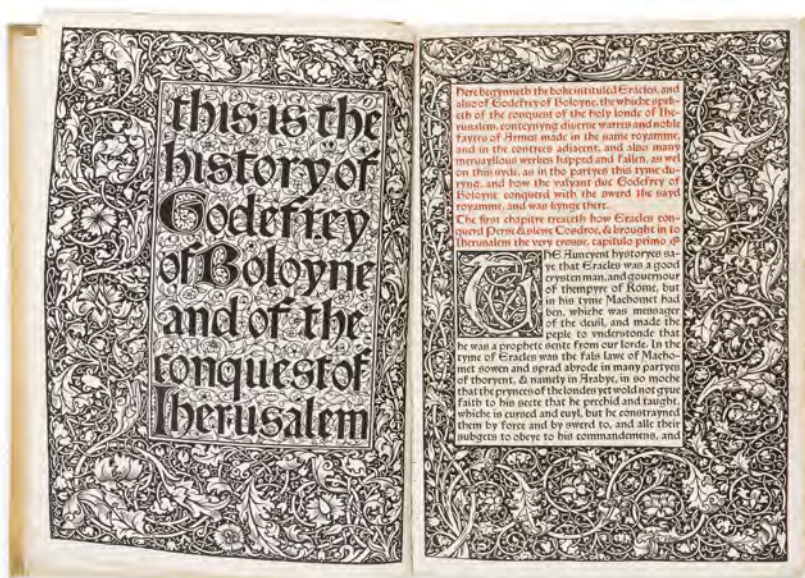 this is the
history of
Godefrey
of Boloyne
and of the
conquest of
Iherusalem
Here begynneth the boke intituled Eracles, and
also of Godefrey of Boloyne, the whiche spek-
eth of the conquest of the holy londe of Ihe-
rusalem, conteynyng diverse warres and noble
faytes of Armes made in the same royamme,
and in the contrees adiacent, and also many
meruayllous werkes happed and fallen, as wel
on this syde, as in tho partyes this tyme du-
ryng, and how the valyant duc Godefrey of
Boloyne conquerd with the swerd the sayd
royamme, and was kynge there.
The first chapitre treateth how Eracles con-
querd Perse & slewe Cosdroe, & brought in to
Iherusalem the very crosse, capitulo primo
THE Auncyent hystoryes sa-
ye that Eracles was a good
crysten man, and gouernour
of thempyre of Rome, but
in his tyme Machomet had
ben, whiche was messager
of the deuil, and made the
peple to vnderstonde that
he was a prophete sente from our lorde. In the
tyme of Eracles was the fals lawe of Macho-
met sowen and sprad abrode in many partyes
of thoryent, & namely in Arabye, in so moche
that the prynces of the londes yet wold not gyue
faith to his secte that he prechid and taught,
whiche is cursed and euyl, but he constrayned
them by force and by swerd to, and alle their
subgets to obeye to his commandemens, and